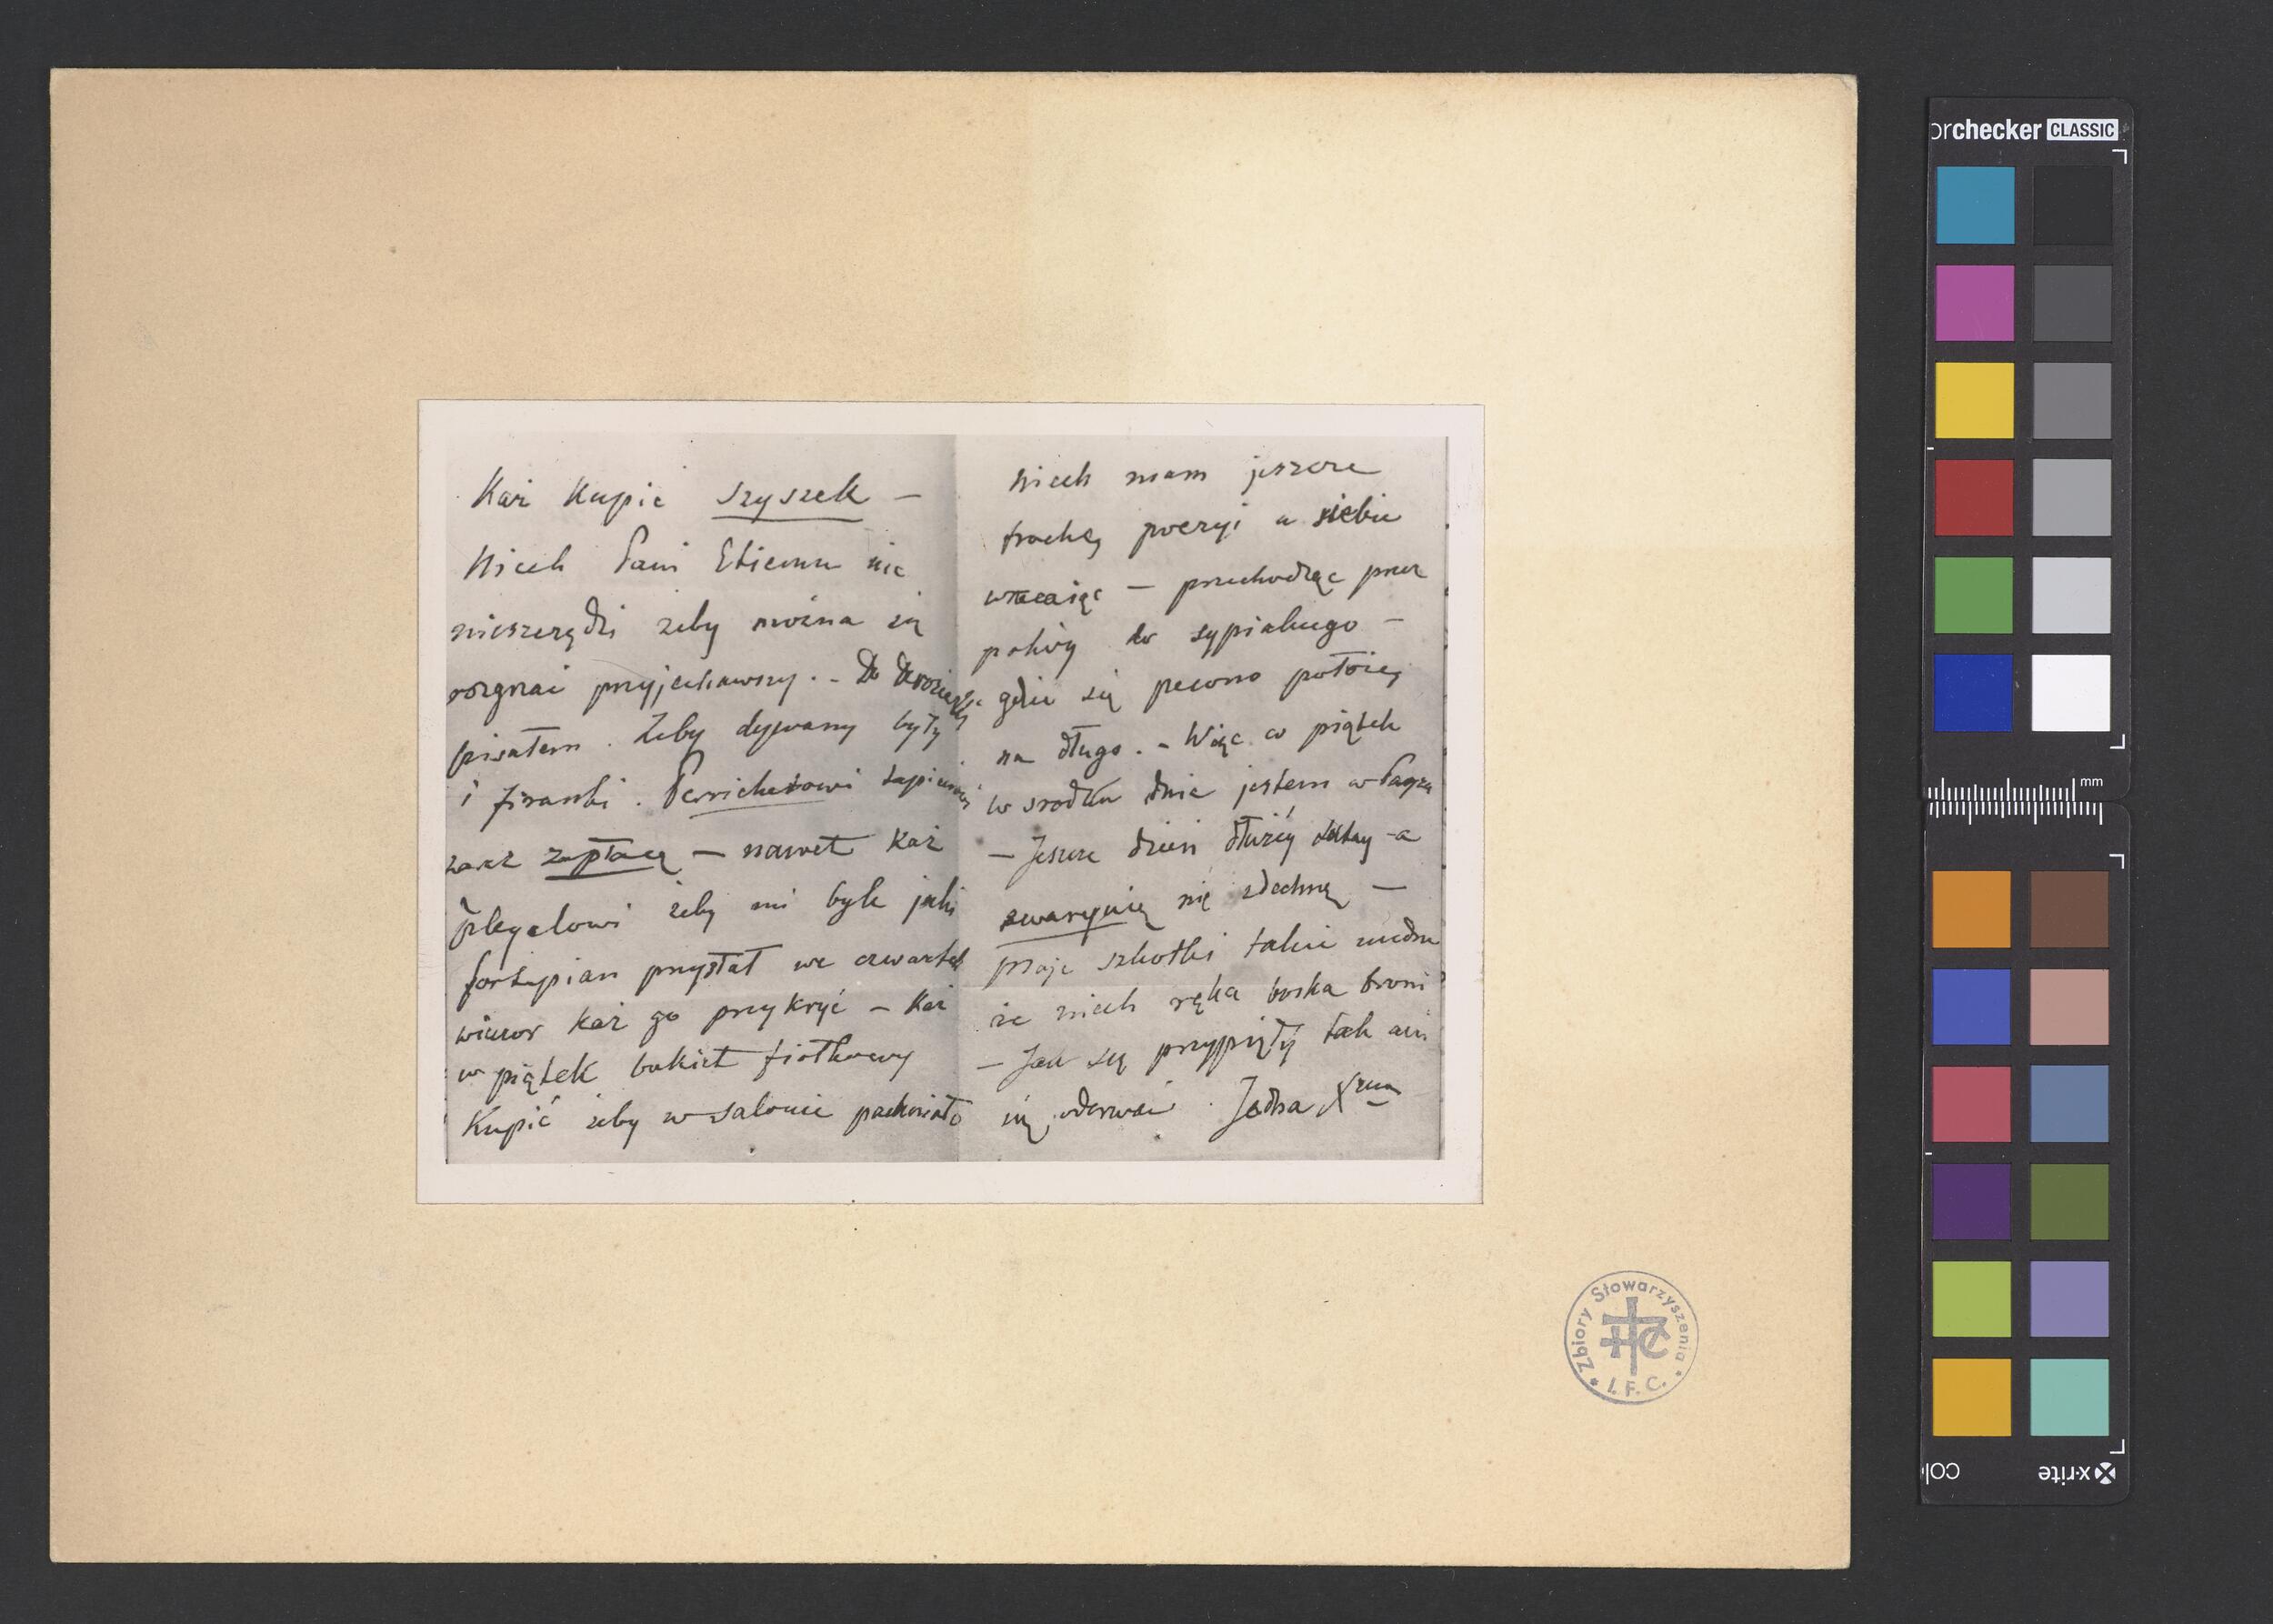 Każ Kupić szyszek —
Niech Pani Etienne nic
nieszczędzi żeby można się
rozgrzać przyjechawszy. – Do
pisałem. Żeby dywany były
i firanki. Perrichetowi tapicerowi
zaraz zapłacę — nawet Każ
Pleyelowi żeby mi byle jaki
fortepian przysłał we czwartek
wieczor Każ go przykryć – Każ
w piątek bukiet fiołkowy
Kupić żeby w salonie pachniało
niech mam jeszcze
trochę poezyi u siebie
wracaiąc — przechodząc przez
pokój do sypialnego –
gdzie się pewno położę
na długo. – Więc w piątek
w srodku dnia jestem w Paryżu
— Jeszcze dzień dłużéj tutay a
zwaryuię nie zdechnę —
Moje szkotki takie nudne
że niech ręka boska broni
— Jak się przypięły tak ani
się oderwać. Jedna Xżna
orchecker CLASSIC
mm
Zbiory Stowarzyszenia
I. F. C.
x-rite
col